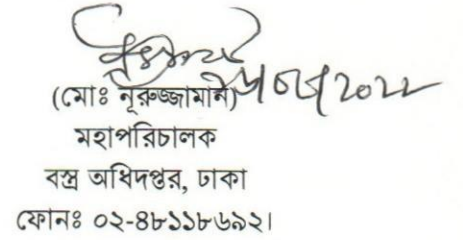 (মোঃ নূরুজ্জামান)
মহাপরিচালক
বস্ত্র অধিদপ্তর, ঢাকা
ফোনঃ ০২-৪৮১১৮৬৯২।